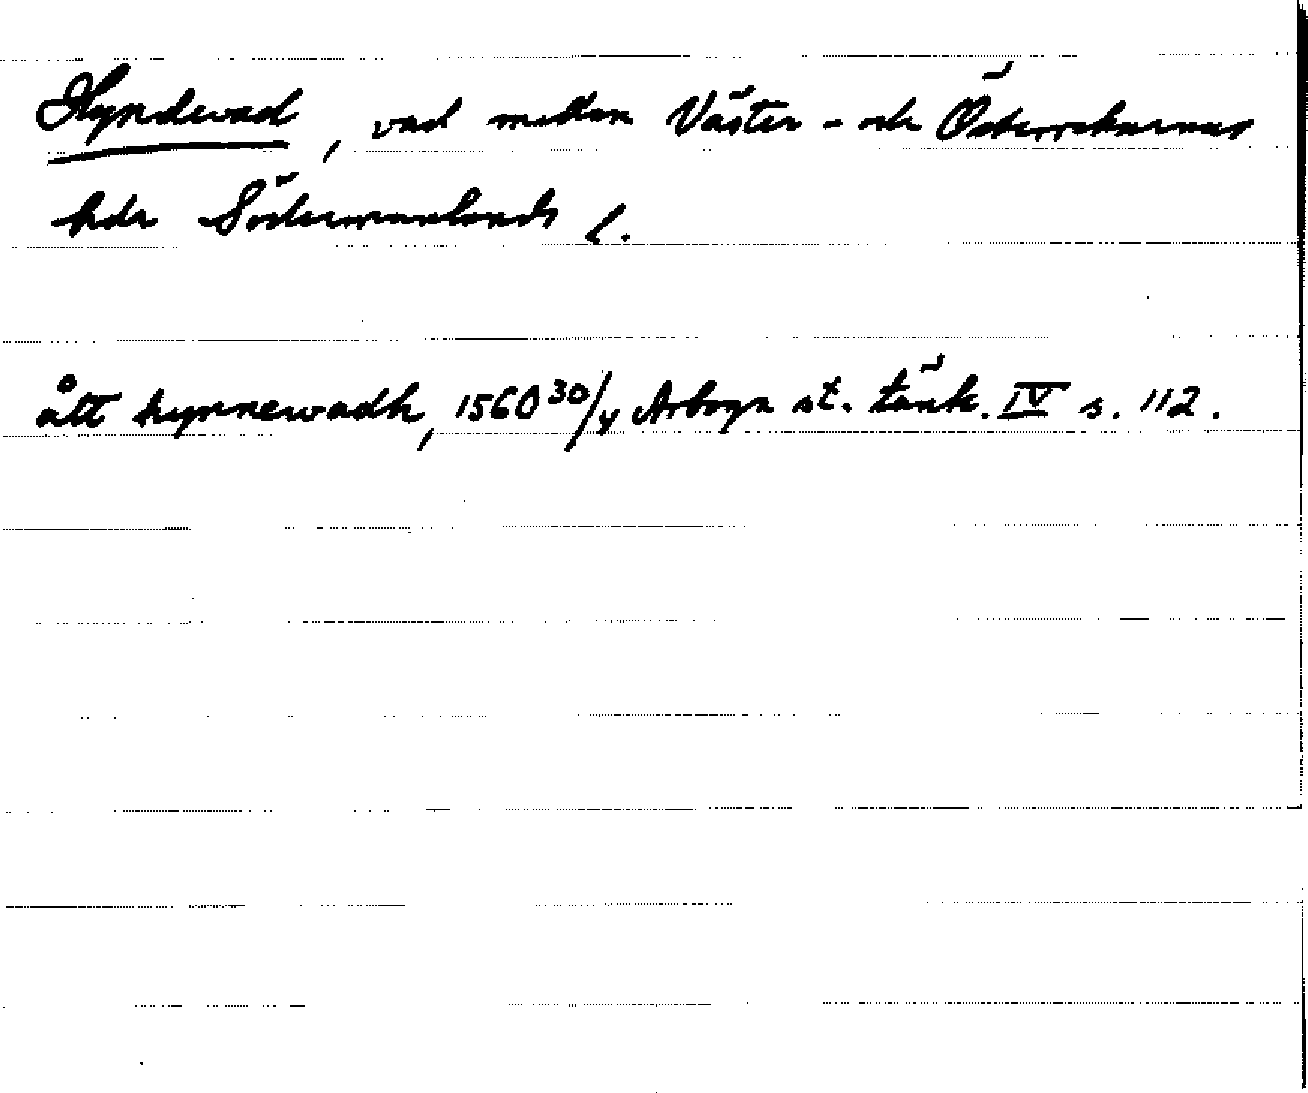 Hyndevad, vad mellan Väster- och Österrekarnes
hdr Södermanlands l.
ått hynnewadh, 1560 30/4 Arboga st. tänk. IV s. 112.